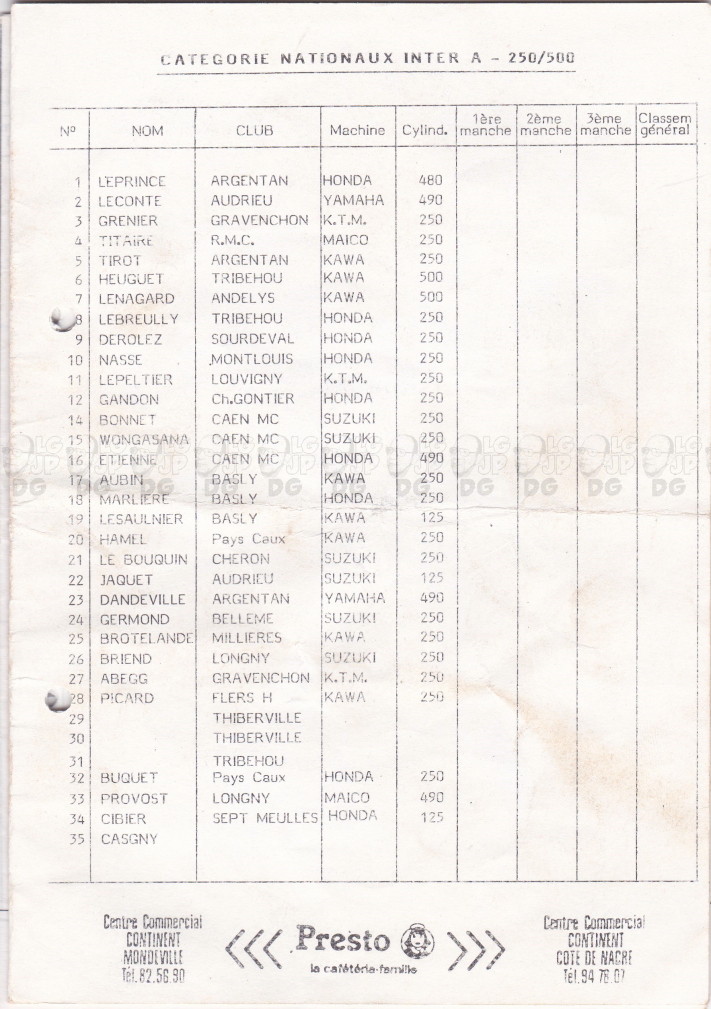 CATEGORIE NATIONAUX INTER A - 250/500
N° NOM CLUB Machine Cylind. 1ère manche 2ème manche 3ème manche Classem général
1 LEPRINCE ARGENTAN HONDA 480
2 LECONTE AUDRIEU YAMAHA 490
3 GRENIER GRAVENCHON K.T.M. 250
4 TITAIRE R.M.C. MAICO 250
5 TIROT ARGENTAN KAWA 250
6 HEUGUET TRIBEHOU KAWA 500
7 LENAGARD ANDELYS KAWA 500
8 LEBREULLY TRIBEHOU HONDA 250
9 DEROLEZ SOURDEVAL HONDA 250
10 NASSE MONTLOUIS HONDA 250
11 LEPELTIER LOUVIGNY K.T.M. 250
12 GANDON Ch.GONTIER HONDA 250
14 BONNET CAEN MC SUZUKI 250
15 WONGASANA CAEN MC SUZUKI 250
16 ETIENNE CAEN MC HONDA 490
17 AUBIN BASLY KAWA 250
18 MARLIERE BASLY HONDA 250
19 LESAULNIER BASLY KAWA 125
20 HAMEL Pays Caux KAWA 250
21 LE BOUQUIN CHERON SUZUKI 250
22 JAQUET AUDRIEU SUZUKI 125
23 DANDEVILLE ARGENTAN YAMAHA 490
24 GERMOND BELLEME SUZUKI 250
25 BROTELANDE MILLIERES KAWA 250
26 BRIEND LONGNY SUZUKI 250
27 ABEGG GRAVENCHON K.T.M. 250
28 PICARD FLERS H KAWA 250
29 THIBERVILLE
30 THIBERVILLE
31 TRIBEHOU
32 BUQUET Pays Caux HONDA 250
33 PROVOST LONGNY MAICO 490
34 CIBIER SEPT MEULLES HONDA 125
35 CASGNY
Centre Commercial
CONTINENT
MONDEVILLE
Tél.82.56.90
Presto
la cafétéria-famille
Centre Commercial
CONTINENT
COTE DE NACRE
Tél.94 78.07